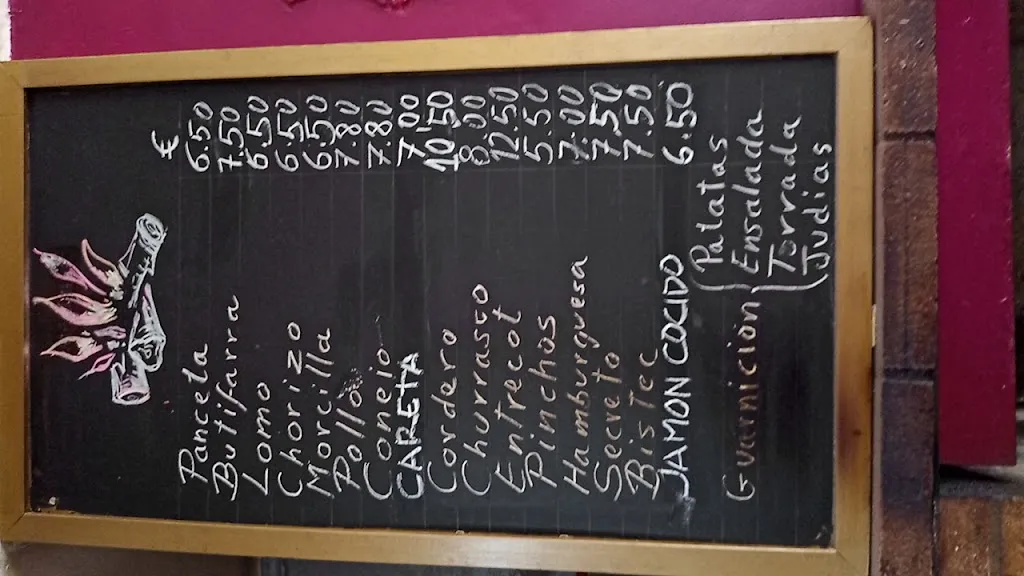 €
Panceta 6.50
Butifarra 7.50
Lomo 6.50
Chorizo 6.50
Morcilla 6.50
Pollo 7.80
Conejo 7.80
CARETA 7.00
Cordero 10.50
Churrasco 8.00
Entrecot 12.50
Pinchos 5.50
Hamburguesa 7.00
Secreto 7.50
Bistec 7.50
JAMON COCIDO 6.50
Guarnición
Patatas
Ensalada
Torrada
Judias